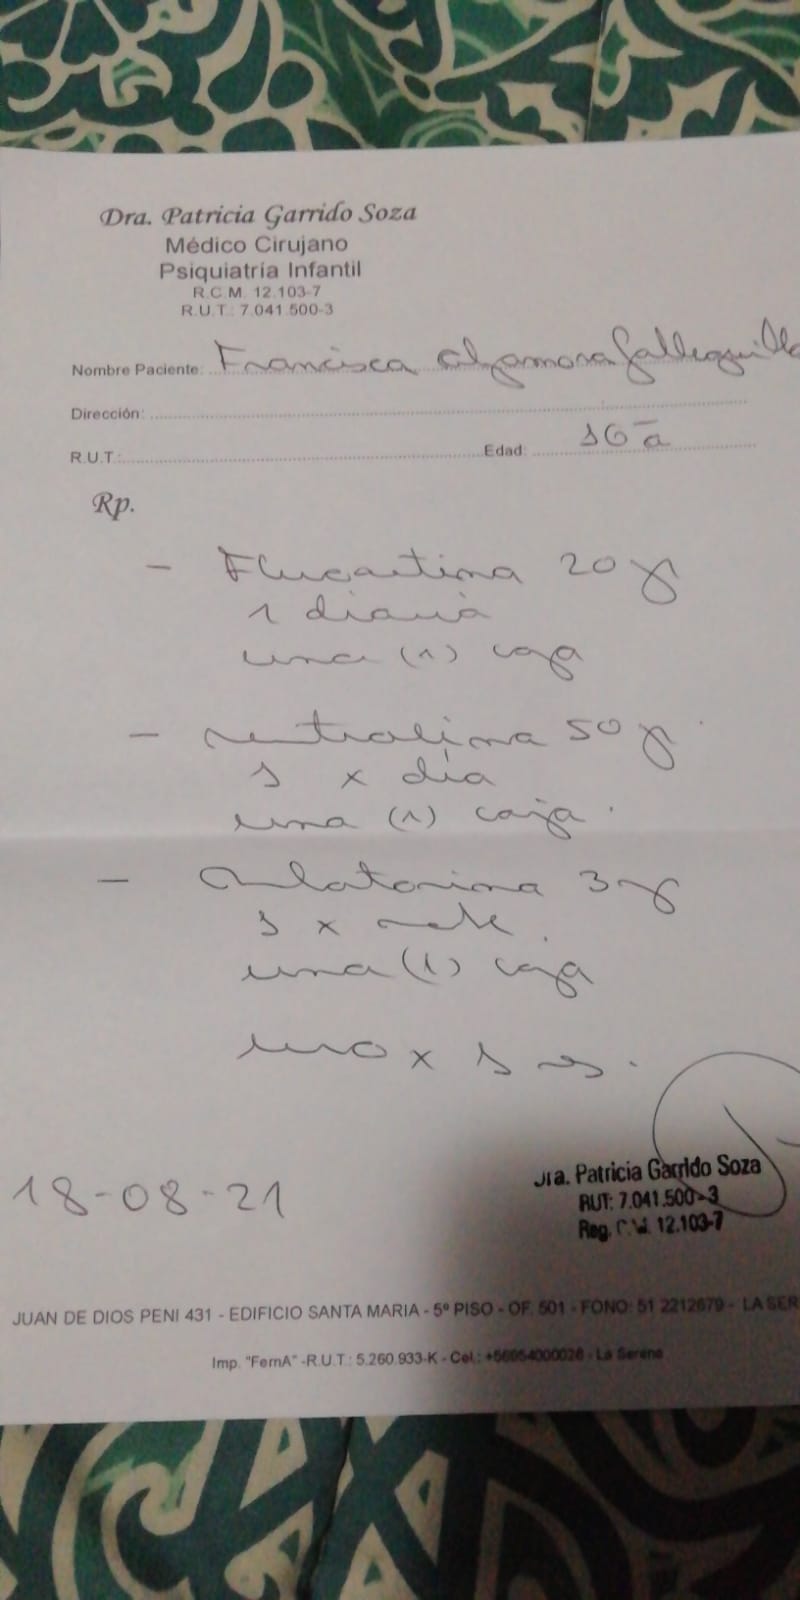 Dra. Patricia Garrido Soza
Médico Cirujano
Psiquiatría Infantil
R.C.M. 12.103-7
R.U.T.: 7.041.500-3
Nombre Paciente: Francisca
Dirección:
R.U.T.: Edad: 16 a
Rp.
- 20
1 diaria
una (1) caja
- 50
1 x día
una (1) caja.
- 3
1 x
una (1) caja
x 1
18-08-21
Dra. Patricia Garrido Soza
RUT: 7.041.500-3
Reg. C.M. 12.103-7
JUAN DE DIOS PENI 431 - EDIFICIO SANTA MARIA - 5º PISO - OF. 501 - FONO: 51 2212679 - LA SER
Imp. "FernA" -R.U.T.: 5.260.933-K - Cel.: +56954000026 - La Serena